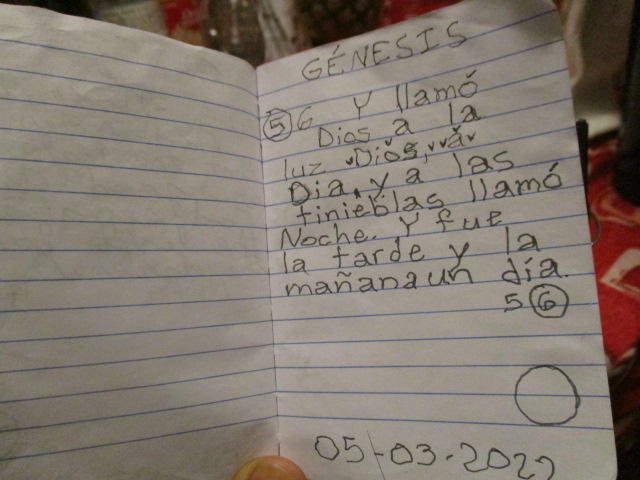 GÉNESIS
⑤6 Y llamó
Dios a la
luz Dios, a
Dia, y a las
tinieblas llamó
Noche. Y fue
la tarde y la
mañana un día.
5⑥
05-03-2022